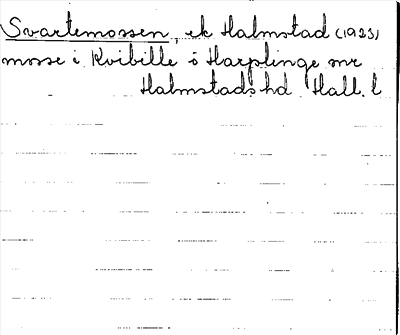 Svartemossen, ek Halmstad (1923)
mosse i Kvibille o Harplinge snr
Halmstads hd Hall. l